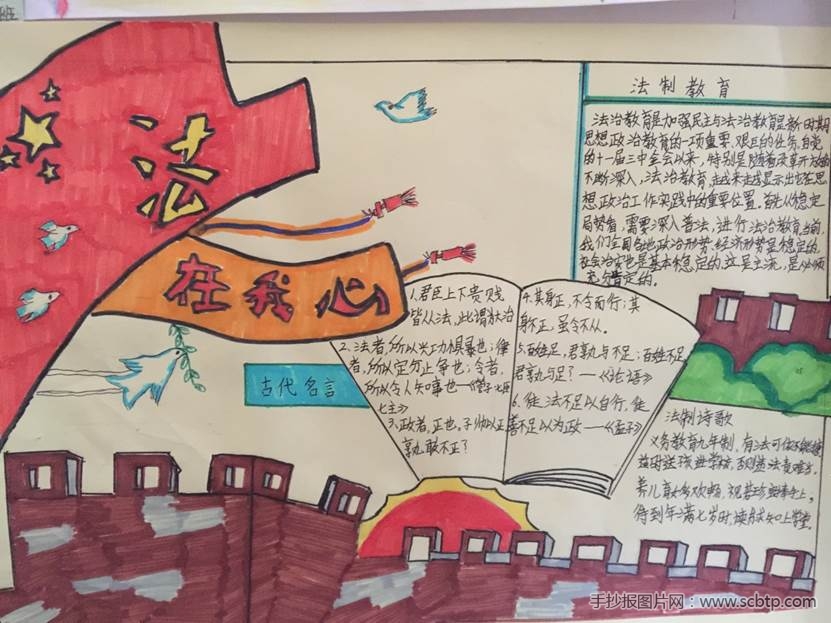 班
法
在我心
法制教育
法治教育是加强民主与法治教育是新时期
思想政治教育的一项重要、艰巨的任务,自党
的十一届三中全会以来,特别是随着改革开放的
不断深入,法治教育,越来越显示出它在思
想政治工作实践中的重要位置。首先从稳定
局势看,需要深入普法,进行法治教育,当前,
我们全国各地政治形势、经济形势是稳定的,
社会治安也是基本稳定的,这是主流,是必须
充分肯定的。
古代名言
1.君臣上下贵贱
皆从法,此谓大治
2.法者,所以兴功惧暴也;律
者,所以定分止争也;令者,
所以令人知事也—《管子七臣
七主》
3.政者,正也。子帅以正
孰敢不正?
4.其身正,不令而行;其
身不正,虽令不从。
5.百姓足,君孰与不足;百姓不足,
君孰与足?——《论语》
6.徒法不足以自行,徒
善不足以为政——《孟子》
法制诗歌
义务教育九年制,有法可依
送孩进学校,否则违法责难
养儿育女多欢畅,视若珍
得到年满七岁时,读书上学堂。
手抄报图片网:www.scbtp.com